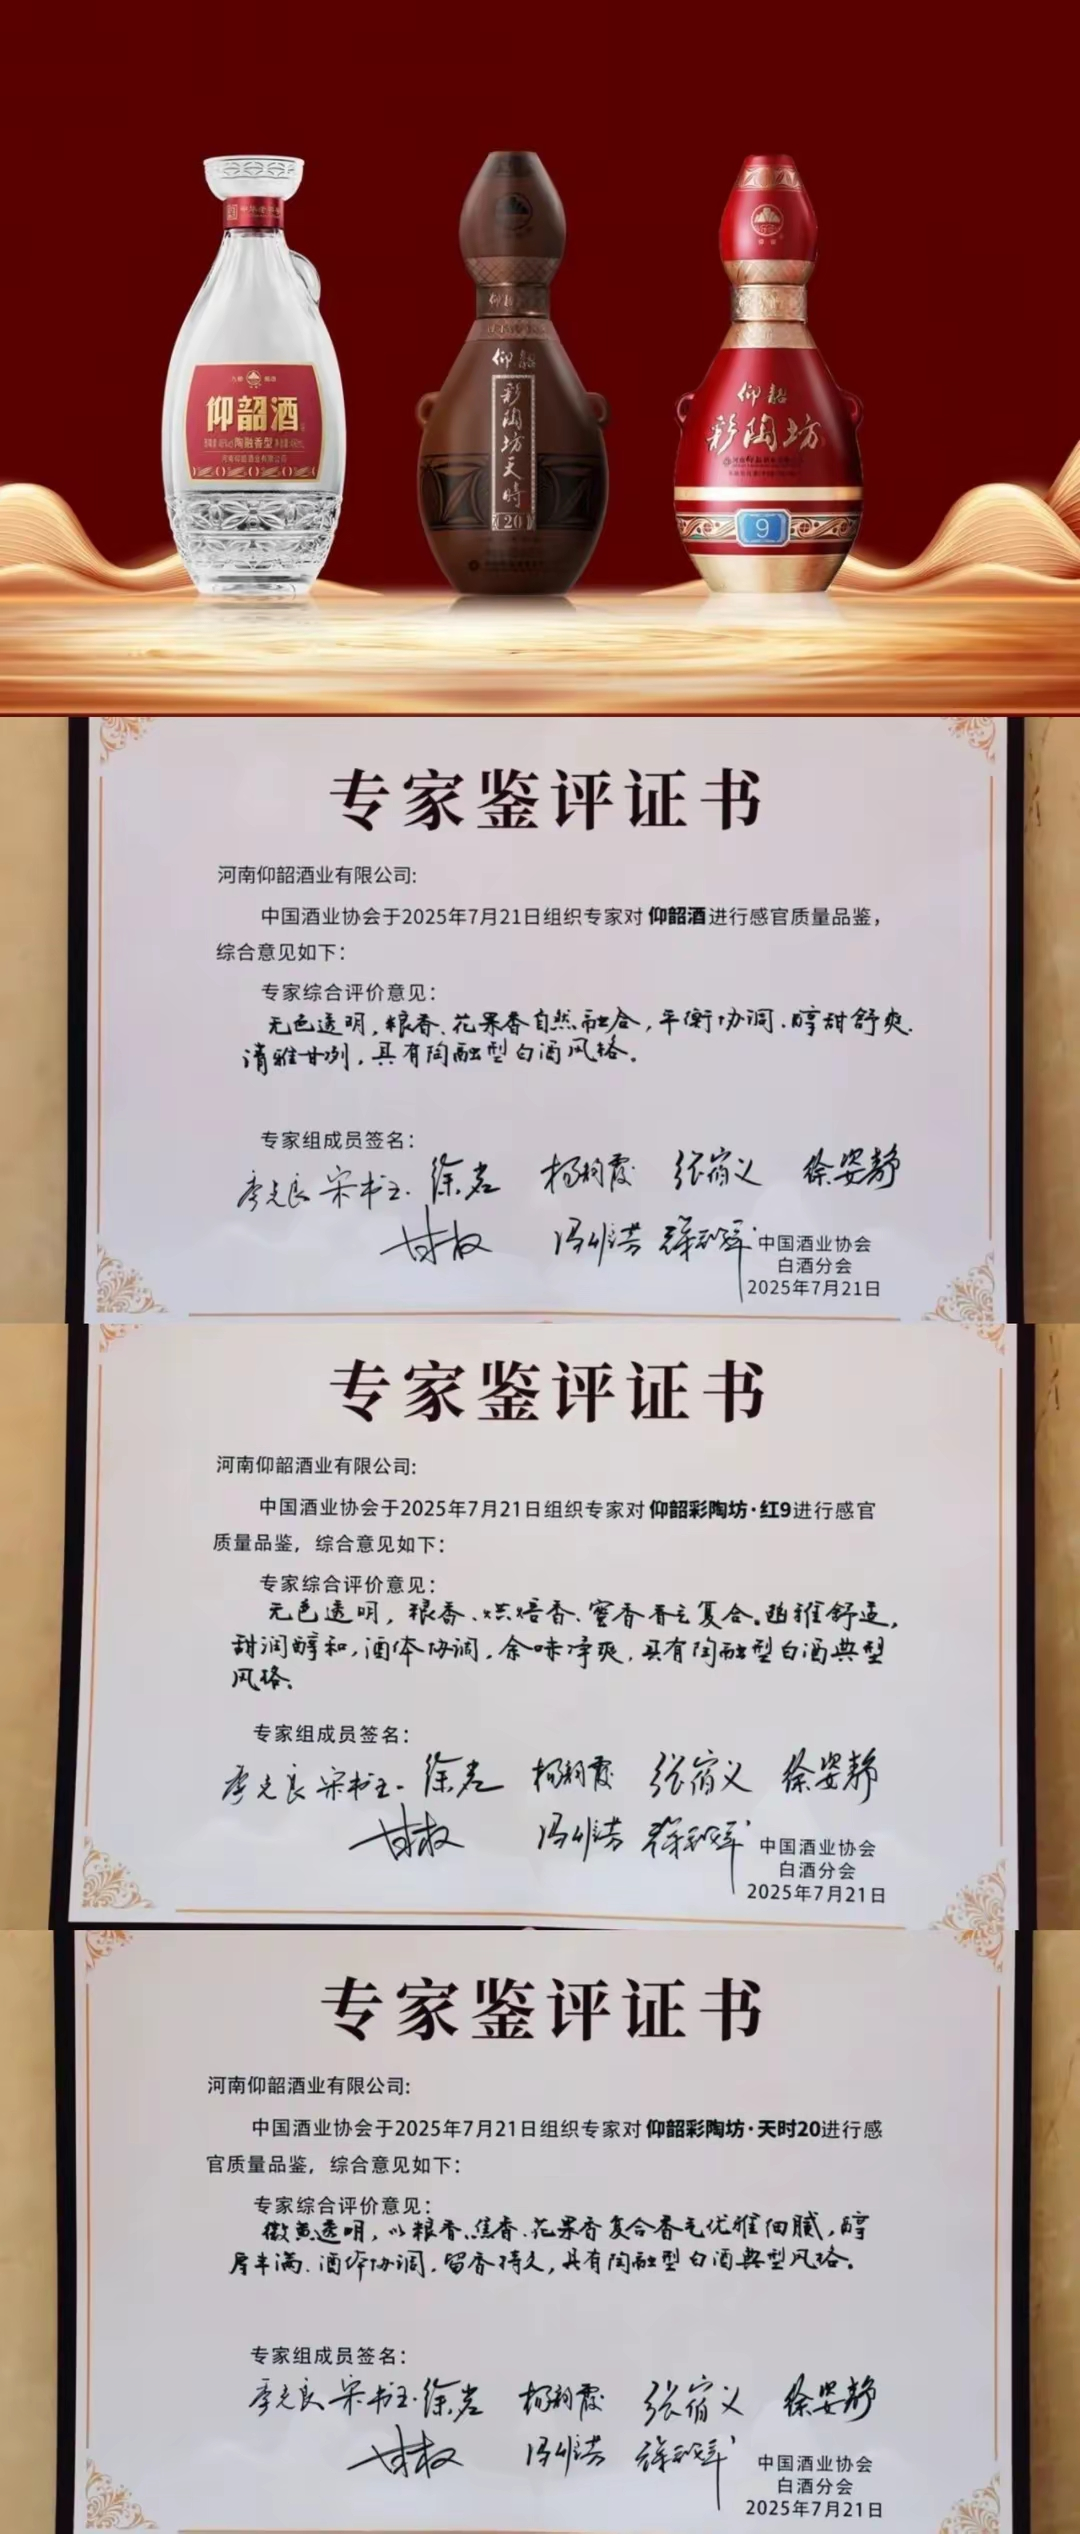 仰韶酒
陶融香型
河南仰韶酒业有限公司
仰韶
彩陶坊天時
20
仰韶
彩陶坊
9
专家鉴评证书
河南仰韶酒业有限公司:
中国酒业协会于2025年7月21日组织专家对 仰韶酒进行感官质量品鉴，
综合意见如下：
专家综合评价意见：
无色透明，粮香、花果香自然融合，平衡协调、醇甜舒爽、
清雅甘冽，具有陶融型白酒风格。
专家组成员签名：
李克良 宋书玉 徐岩 杨韵霞 张宿义 徐姿静
甘权
中国酒业协会
白酒分会
2025年7月21日
专家鉴评证书
河南仰韶酒业有限公司:
中国酒业协会于2025年7月21日组织专家对 仰韶彩陶坊·红9进行感官
质量品鉴，综合意见如下：
专家综合评价意见：
无色透明，粮香、烘焙香、蜜香香气复合。幽雅舒适，
甜润醇和，酒体协调，余味净爽，具有陶融型白酒典型
风格。
专家组成员签名：
李克良 宋书玉 徐岩 杨韵霞 张宿义 徐姿静
甘权
中国酒业协会
白酒分会
2025年7月21日
专家鉴评证书
河南仰韶酒业有限公司:
中国酒业协会于2025年7月21日组织专家对 仰韶彩陶坊·天时20进行感
官质量品鉴，综合意见如下：
专家综合评价意见：
微黄透明，以粮香、焦香、花果香复合香气优雅细腻，醇
厚丰满、酒体协调，留香持久，具有陶融型白酒典型风格。
专家组成员签名：
李克良 宋书玉 徐岩 杨韵霞 张宿义 徐姿静
甘权
中国酒业协会
白酒分会
2025年7月21日